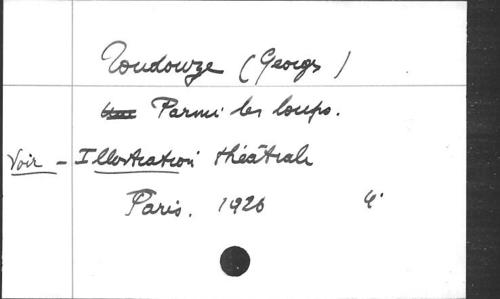 Toudouze (Georges)
Parmi les loups.
Voir - Illustration théâtrale
Paris. 1926 4°